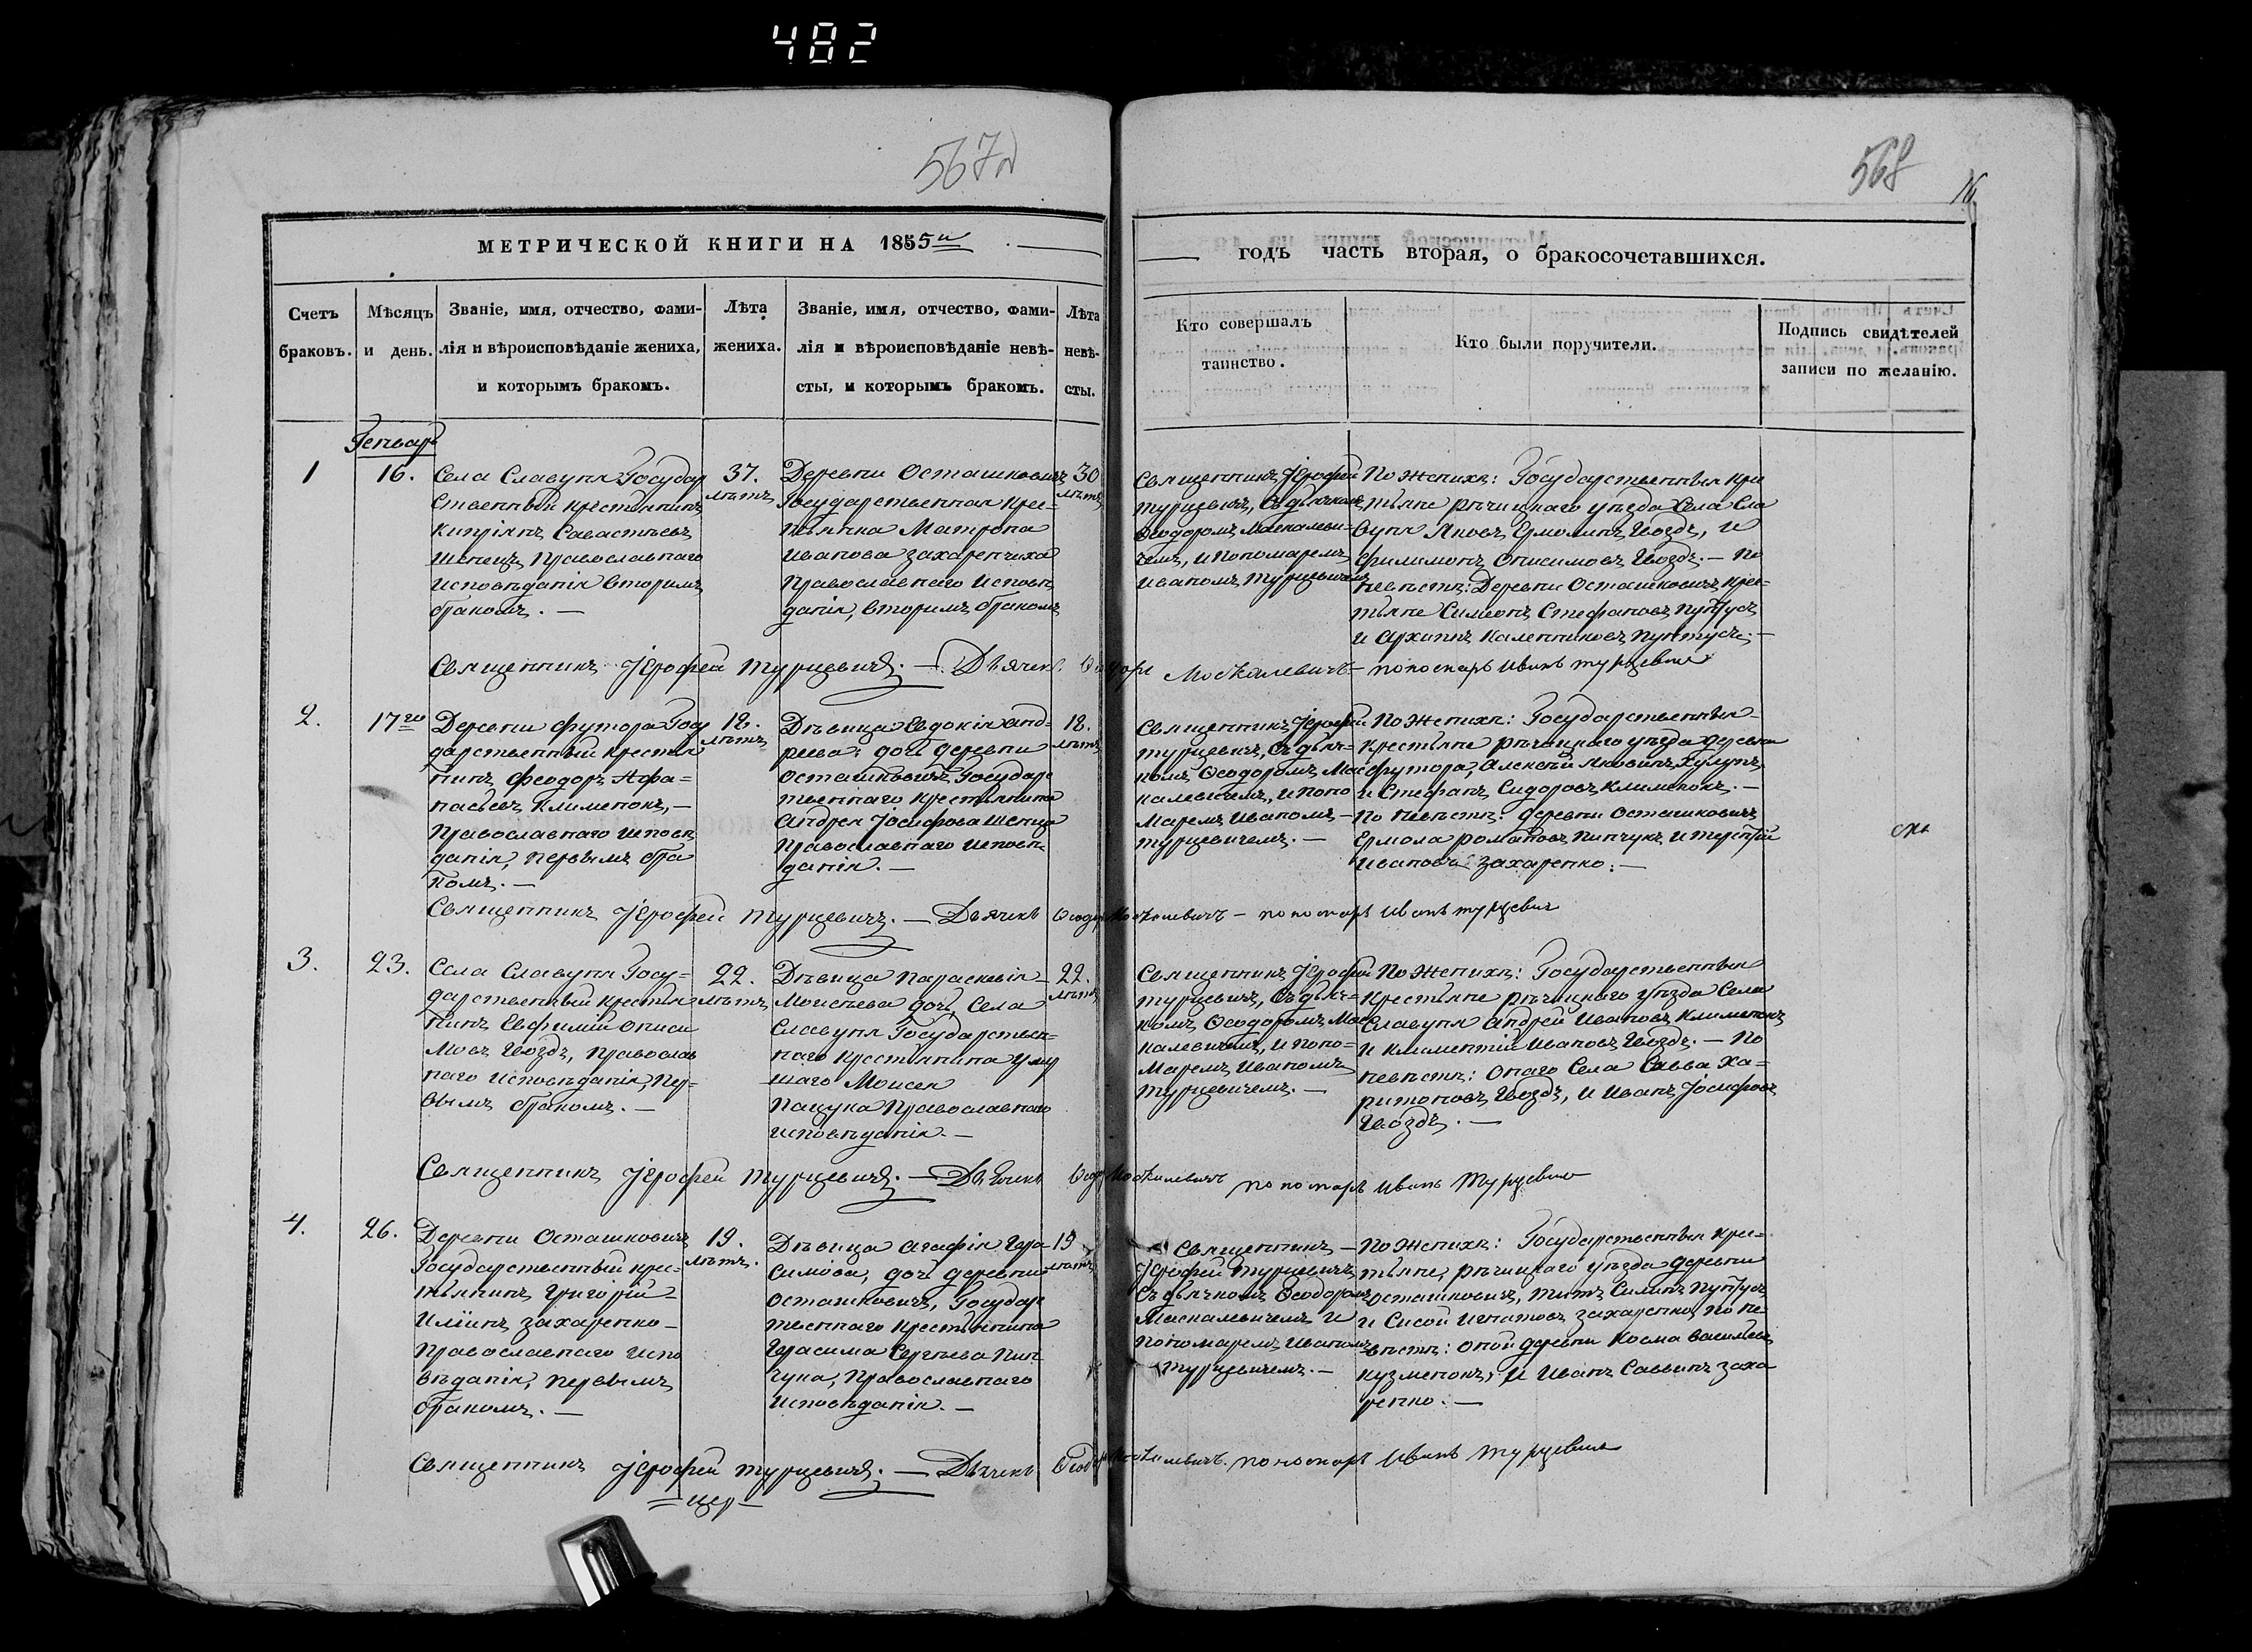 482
567 об
568
16
МЕТРИЧЕСКОЙ КНИГИ НА 1855й
годъ часть вторая, о бракосочетавшихся.
Счетъ браковъ.
Мѣсяцъ и день.
Званіе, имя, отчество, фами-
лія и вѣроисповѣданіе жениха,
и которымъ бракомъ.
Лѣта
жениха.
Званіе, имя, отчество, фами-
лія и вѣроисповѣданіе невѣ-
сты, и которымъ бракомъ.
Лѣта
невѣ-
сты.
Кто совершалъ
таинство.
Кто были поручители.
Подпись свидѣтелей
записи по желанію.
Генварь
1
16.
Села Славупя Государ
ственный крестьянинъ
Кипріянъ Савастѣевъ
Швецъ, Православнаго
Исповѣданія вторымъ
бракомъ. —
37.
лѣтъ
Деревни Осташковичъ
Государственная Крес-
тьянка Матрона
Иванова Захаренчиха
Православнаго Исповѣ
данія, вторымъ бракомъ
30
лѣтъ
Священникъ Іерофей
Турцевичъ, съ дьячкомъ
Ѳеодоромъ Маскалеви-
чемъ, и Пономаремъ
Иваномъ Турцевичемъ
По Женихѣ: Государственныя Кре
стьяне рѣчицкаго уѣзда Села Сла
вупя Яковъ Ермолинъ Гвоздъ, и
Филимонъ Онисимовъ Гвоздъ. — По
невѣстѣ: Деревни Осташковичъ крес-
тьяне Симеонъ Стефановъ Пунтусъ
и Архипъ Каленниковъ Пунтусъ. —
Священникъ Іерофей Турцевичъ. — Дьячекъ Ѳеодоръ Москалевичъ — пономарь Иванъ Турцевич
2.
17го
Деревни Футора Госу
дарственный крестья
нинъ Феодоръ Афа-
насьевъ Клименокъ, —
Православнаго Исповѣ
данія, первымъ бра
комъ. —
18.
лѣтъ
Дѣвица Евдокія Анд-
реева: дочь деревни
Осташковичъ Государс
твеннаго Крестьянина
Андрея Іосифова Швеца
Православнаго Исповѣ
данія. —
18.
лѣтъ
Священникъ Іерофей
Турцевичъ, съ дьяч-
комъ Ѳеодоромъ Мас
калевичемъ, и поно
Маремъ Иваномъ —
Турцевичемъ. —
По Женихѣ: Государственныя —
Крестьяне рѣчицкаго уѣзда деревни
Футора, Алексѣй Яковинъ Хулупъ
и Стефанъ Сидоровъ Клименокъ. —
По Невѣстѣ: деревни Осташковичъ
Ермола Романовъ Пинчукъ и Терентій
Ивановъ Захаренко. —
Священникъ Іерофей Турцевичъ. — Дьячекъ Ѳеодоръ Москалевичъ — пономарь Иванъ Турцевич
3.
23.
Села Славупя Госу-
дарственный крестья
нинъ Евфимій Ониси
мовъ Гвоздъ, Православ
наго Исповѣданія, Пер-
вымъ бракомъ. —
22.
лѣтъ
Дѣвица Параскевія
Моисѣева дочь, Села
Славупя Государствен-
наго Крестьянина Умер
шаго Моисея
Пацука Православнаго
Исповѣданія. —
22.
лѣтъ
Священникъ Іерофей
Турцевичъ, съ дьяч-
комъ Ѳеодоромъ Мас
калевичемъ, и поно-
Маремъ Иваномъ
Турцевичемъ. —
По Женихѣ: Государственныя
Крестьяне рѣчицкаго уѣзда Села
Славупя Андрей Ивановъ Клименокъ
и Климентій Ивановъ Гвоздъ. — По
невѣстѣ: Онаго Села Савва Ха-
ритоновъ Гвоздъ, и Иванъ Іосифовъ
Гвоздъ. —
Священникъ Іерофей Турцевичъ. — Дьячекъ Ѳеодоръ Москалевичъ пономарь Иванъ Турцевич
4.
26.
Деревни Осташковичъ
Государственный крес-
тьянинъ Григорій
Иліинъ Захаренко —
Православнаго Испо
вѣданія, первымъ
бракомъ. —
19.
лѣтъ.
Дѣвица Агафія Гера-
симова, дочь деревни
Осташковичъ, Государс
твеннаго Крестьянина
Герасима Сергѣева Пин
чука, Православнаго
Исповѣданія. —
19
лѣтъ
Священникъ —
Іерофей Турцевичъ
Съ дьячкомъ Ѳеодоромъ
Маскалевичемъ и
Пономаремъ Иваномъ
Турцевичемъ. —
По Женихѣ: Государственныя Крес-
тьяне, рѣчицкаго уѣзда деревни
Осташковичъ, Титъ Силинъ Пунтусъ
и Сисой Игнатовъ Захаренко, по не
вѣстѣ: оной деревни Косма Васильевъ
Кузменокъ, и Иванъ Саввинъ Заха
ренко. —
Священникъ Іерофей Турцевичъ. — Дьячекъ Ѳеодоръ Москалевичъ. пономарь Иванъ Турцевич